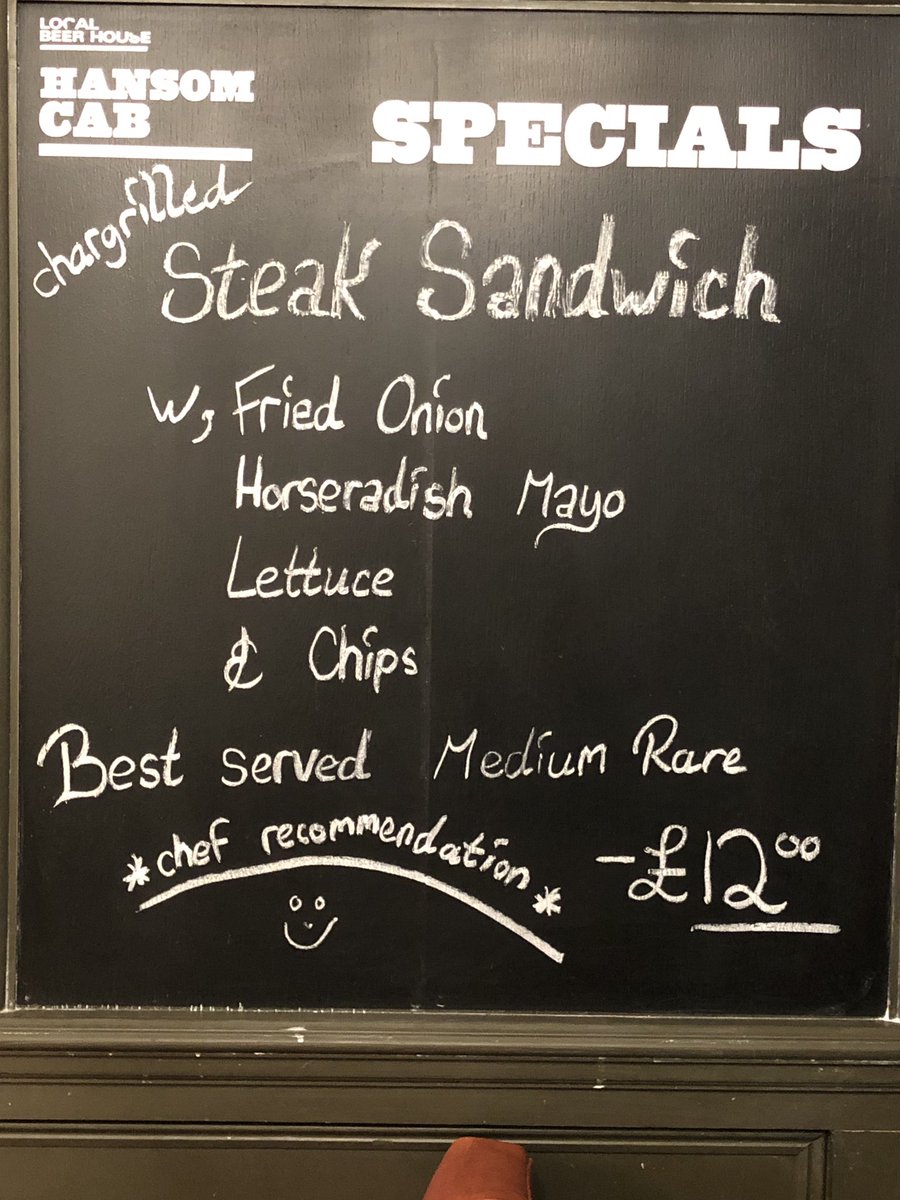 LOCAL
BEER HOUSE
HANSOM
CAB
SPECIALS
chargrilled
Steak Sandwich
w, Fried Onion
Horseradish Mayo
Lettuce
& Chips
Best served Medium Rare
*chef recommendation*
-£12⁰⁰